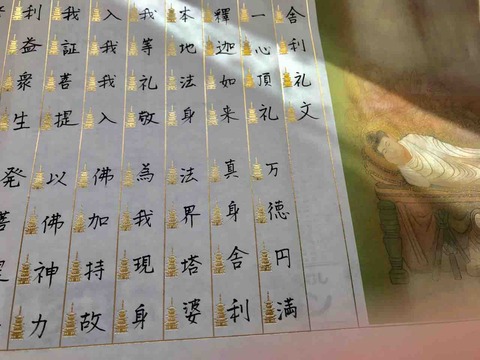 舎利礼文
一心頂礼万徳円満
釋迦如来真身舎利
本地法身法界塔婆
我等礼敬為我現身
入我我入佛加持故
我証菩提以佛神力
利益衆生発菩